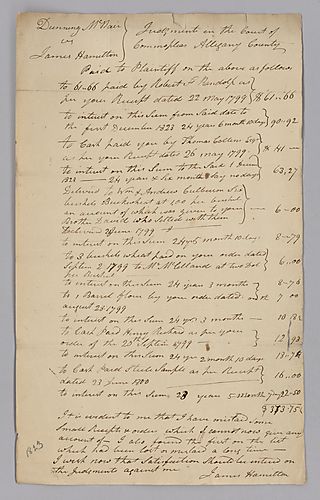 Dunning McNair } Judgment in the Court of
vs } Commonpleas Allegany County
James Hamilton
Paid to Plaintiff on the above as follows
to 61-66 paid by Robert Rendolph as
per your Receipt dated 22 may 1799 $ 61..66
to intrest on this Sum from Said date to
the first December 1823 24 year 6 month 10 day 90-92
to Cash paid you by Thomas Collen Esqr
as per your Recept dates 26 may 1799 $ 41 —
to intrest on this Sum to the 1
24 years 6 month 63,27
Delivered to Wm & Andrew Culburn Six
bushels Buckwheat at 100 per bushel
an account of which was given by your
Brother David who Settled with them 6-00
Delivered 20 June 1799
to intrest on this Sum 24 yrs 6 month 10 day 8-79
to 3 bushels wheat paid on your order dated
Septem 2 1799 to Mr McClland at two Dol 6..00
per Bushel
to intrest on this Sum 24 year 3 month 8-76
to 1 Barel flour by your order dated 7 00
august 23 1799
to intrest on this Sum 24 yrs 3 month 10
to Cash Paid Henry Richard as per your
order of the 23th Septem 1799 12
to intrest on this Sum 24 yr 2 month 10 days 18-
to Cash Paid Steele Sample as per Recept
dated 23 June 1800 16..00
to intrest on this Sum 23 years 5 month 22-50
$ 373-75
It is evident to me that I have mislad Some
Small Recepts & order which I cannot now give any
account of — I also found the first on the list
which had been lost or mislaid a long time —
I wish now that Satisfaction Should be entered on
the Judgments against me
James Hamilton
1823